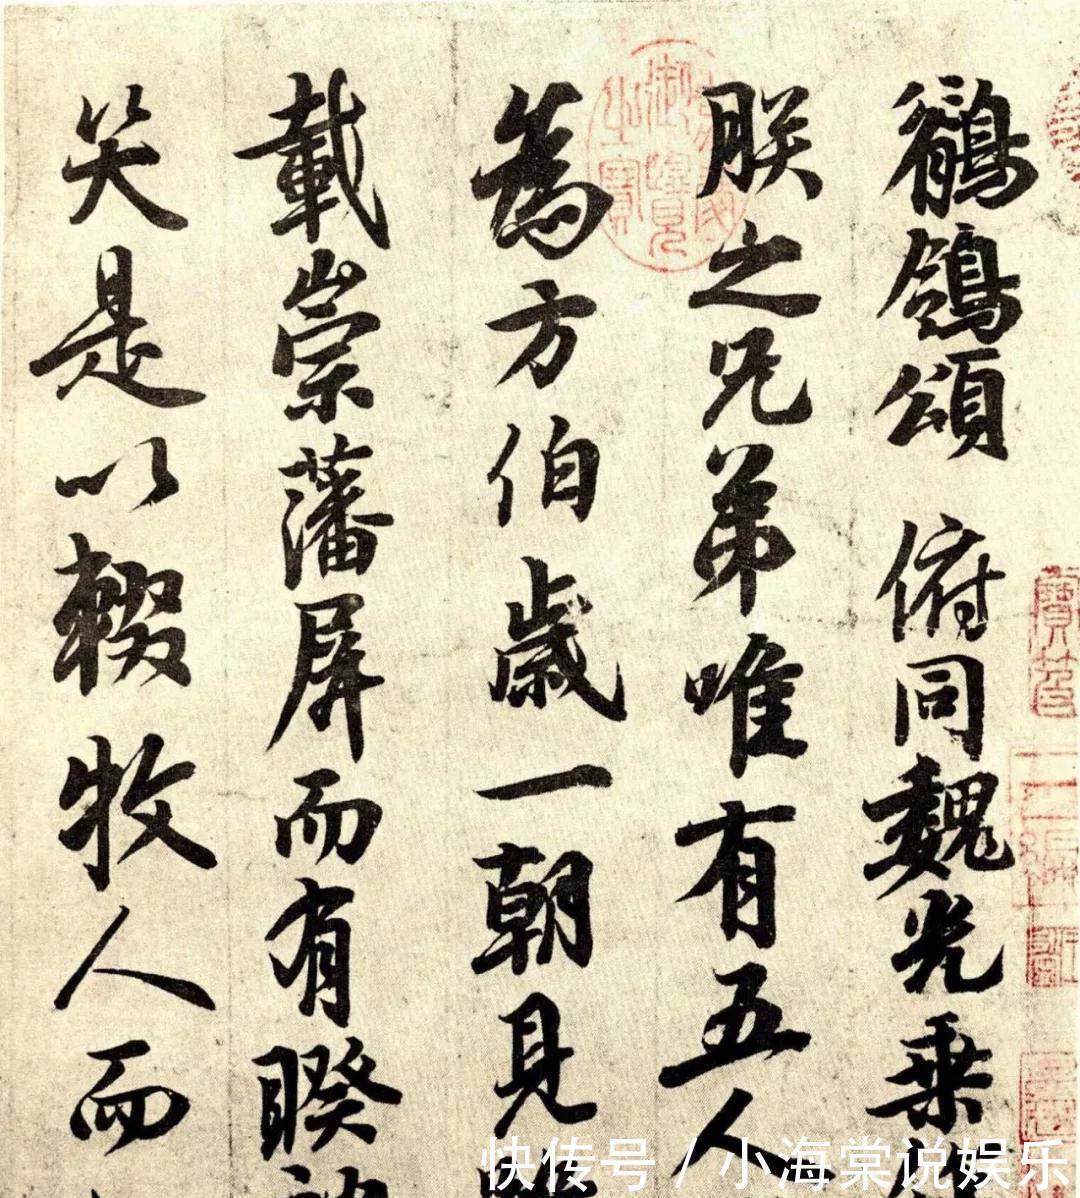 鶺鴒頌 俯同魏光乘
朕之兄弟唯有五人
為方伯歲一朝見
載崇藩屏而有睽
笑是以輟牧人而
快传号 / 小海棠说娱乐